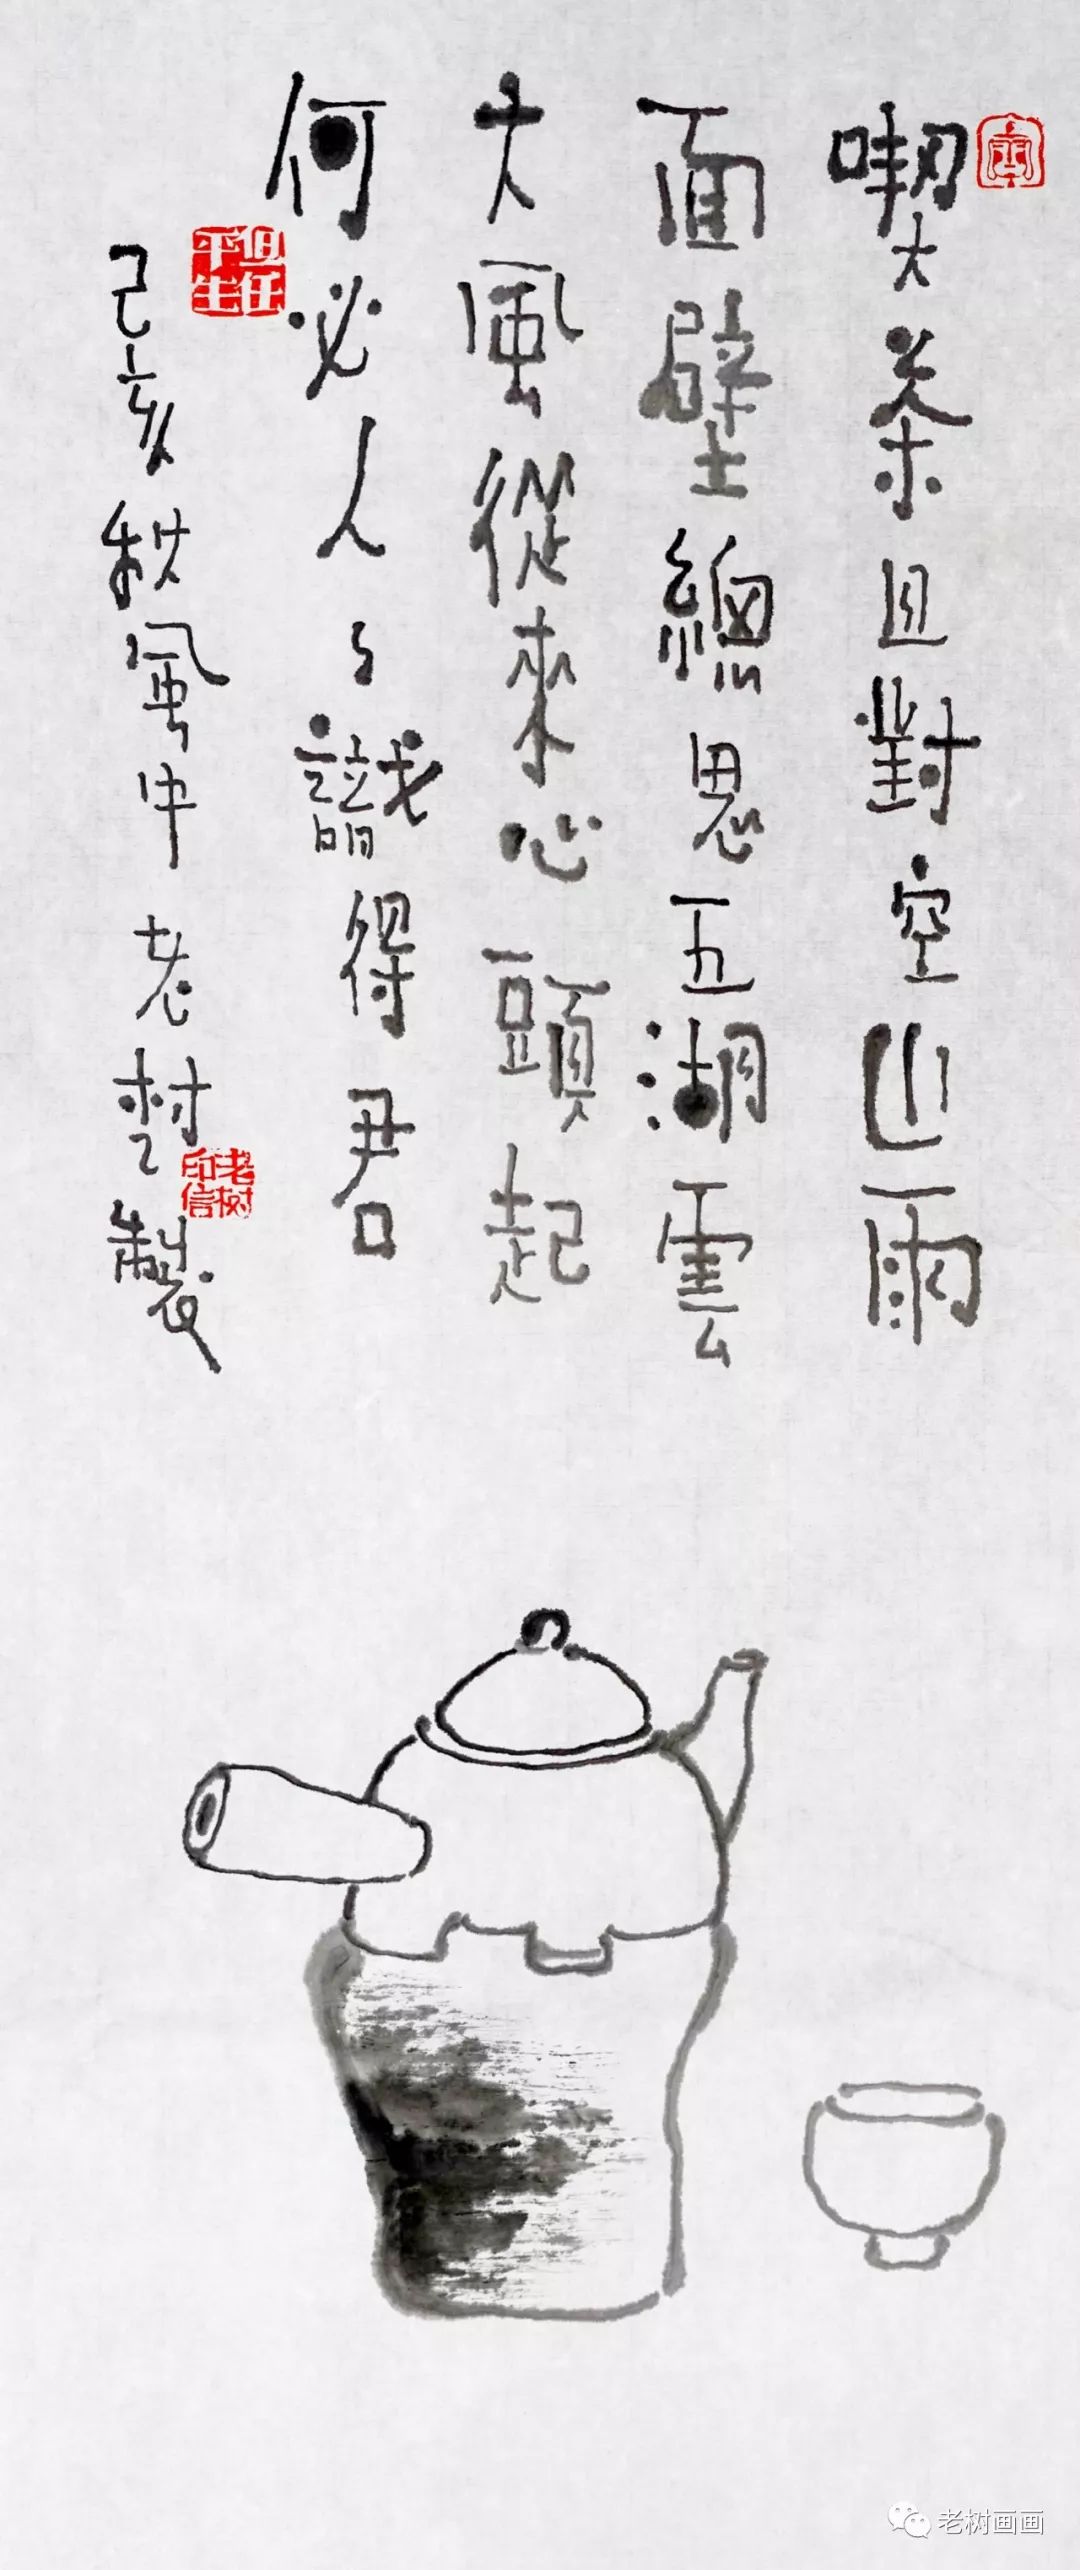 喫茶且對空山雨
面壁總思五湖雲
大風從來心頭起
何必人人識得君
己亥秋風中老樹製
但任平生
老树印信
老树画画